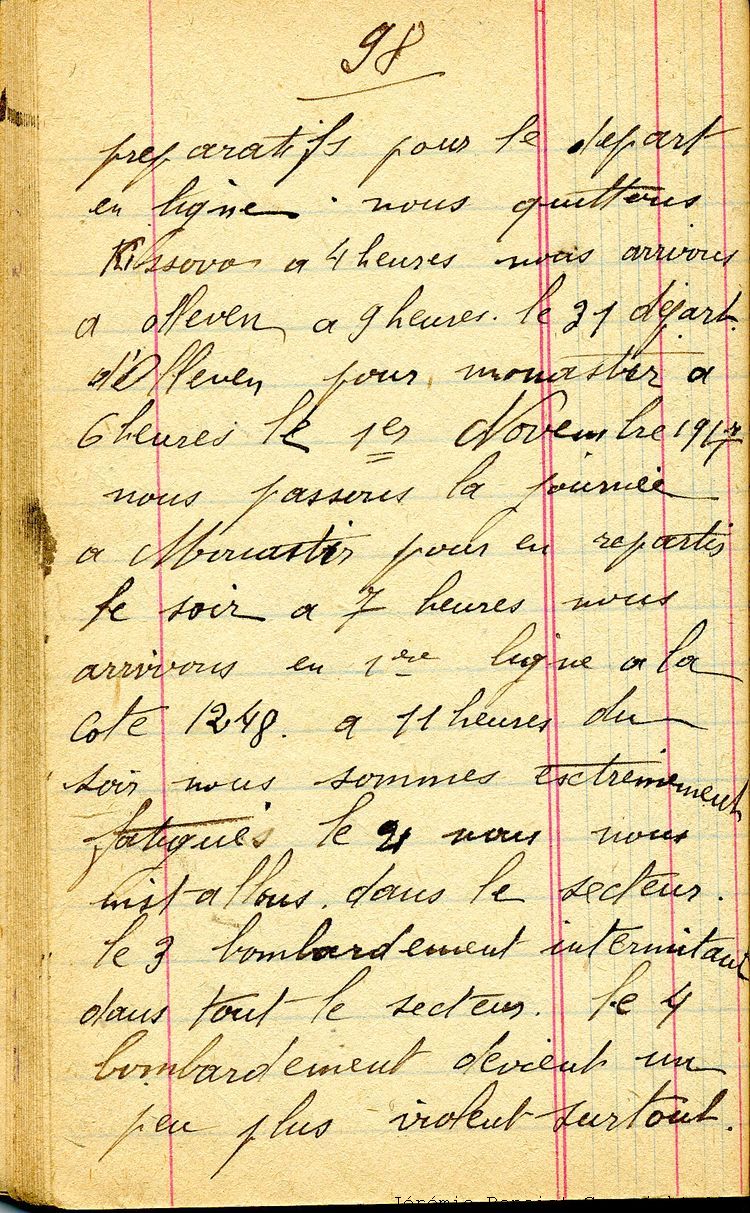 98
preparatifs pour le depart
en ligne. nous quittons
Kissovo a 4 heures nous arrivons
a Olleven a 9 heures. le 31 départ
d'Olleven pour monastir a
6 heures le 1er Novembre 1917
nous passons la journée
a Monastir pour en repartir
le soir a 7 heures nous
arrivons en 1ere ligne a la
cote 1248. a 11 heures du
soir nous sommes esctremement
fatigués le 2 nous nous
installons dans le secteur.
le 3 bombardement intermitant
dans tout le secteur. le 4
bombardement devient un
peu plus violent surtout.